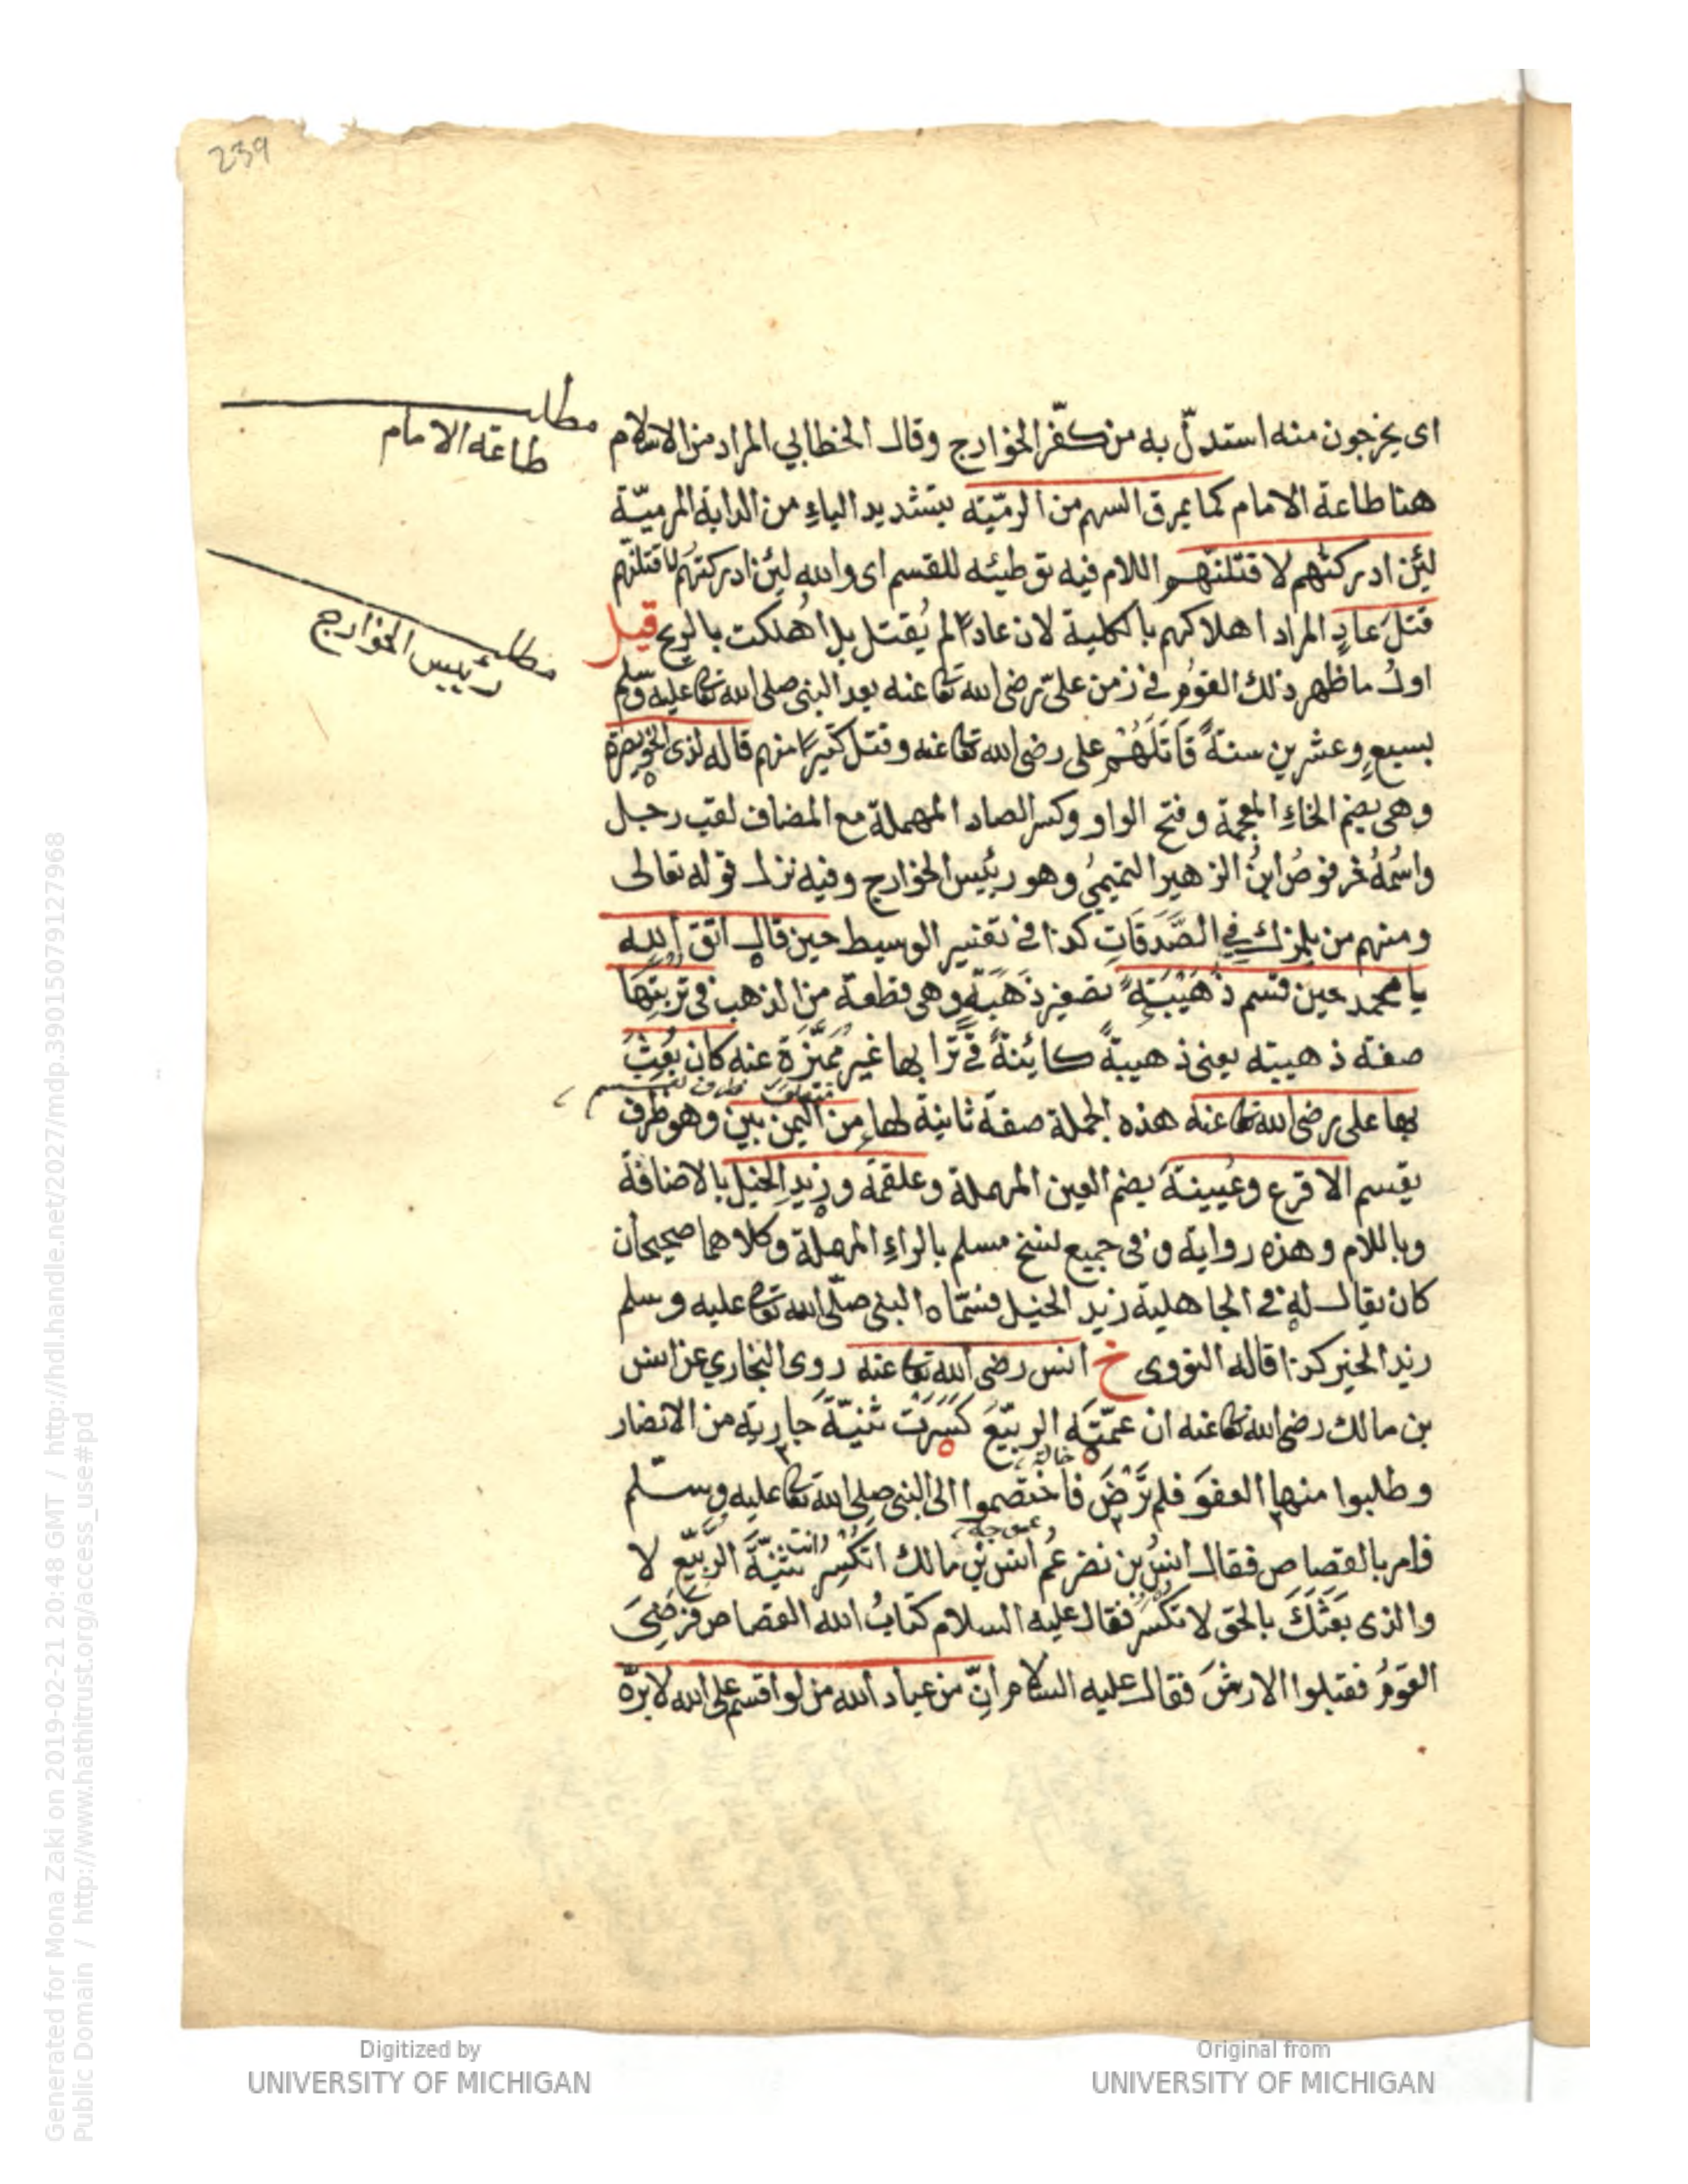 239
مطلب
طاعة الامام
اى يخرجون منه استدلّ به من كفّر الخوارج وقال الخطابي المراد من الاسلام
هنا طاعة الامام كما يمرق السهم من الرميّة بتشديد الياءِ من الدابة المرميّة
لئن ادركتهم لاقتلنهم اللام فيه توطئه للقسم اى والله لئن ادركتهم لاقتلنهم
مطلب
رئيس الخوارج
قتلَ عادٍ المراد اهلاكهم بالكلية لان عادًا لم يُقتل بل اُهلكت بالريح قيل
اول ما ظهر ذلك القوم فى زمن علىّ رضى الله تعا عنه بعد النبى صلى الله تعا عليه وسلم
بسبعٍ وعشرين سنةً قَاتَلَهُم على رضى الله تعا عنه وقتل كثيرًا منهم قاله لذى الخويصرة
وهى بضم الخاءِ المعجمة وفتح الواو وكسر الصاد المهملة مع المضاف لقب رجل
واسمُهُ خرقوصُ ابنُ الزهير التميمىُ وهو رئيس الخوارج وفيه نزل قوله تعالى
ومنهم من يلمزك فِي الصَّدَقَاتِ كذا فى تفسير الوسيط حين قال اتق الله
يا محمد حين قسم ذُهَيْبَةً تصغير ذَهَبَةٍ وهى قطعة من الذهب فى تربتها
صفة ذهيبة يعنى ذهيبةً كائنةً فى ترابها غير مُميّزة عنه كان بُعِثَ
بها على رضى الله تعا عنه هذه الجملة صفة ثانية لها من اليمن بين وهو ظرف
يقسم الاقرع وعُيينةَ بضم العين المهملة وعلقمة وزيدِ الخيل بالاضافة
وباللام وهذه رواية وفى جميع نسخ مسلم بالراءِ المهملة وكلاهما صحيحان
كان يقال له فى الجاهلية زيد الخيل فسمّاه النبى صلّى الله تعا عليه وسلم
زيد الخير كذا قاله النووى خ انس رضى الله تعا عنه روى البخاري عن انس
بن مالك رضى الله تعا عنه ان عمّتَه الربيّعَ كَسَرَت ثنيّةَ جارية من الانصار
خالة
وطلبوا منها العفوَ فلم تَرْضَ فاختصموا الى النبى صلى الله تعا عليه وسلم
فامر بالقصاص فقال انسُ بن نضر عمُ انس بن مالك اتكسر ثنيّةَ الرُبيّع لا
والذى بَعَثَكَ بالحق لا تكسر فقال عليه السلام كتابُ الله القصاص فرَضِىَ
القومُ فقبلوا الارشَ فقال عليه السلام انّ من عباد الله من لو اقسم على الله لابرّه
Digitized by
UNIVERSITY OF MICHIGAN
Original from
UNIVERSITY OF MICHIGAN
Generated for Mona Zaki on 2019-02-21 20:48 GMT / http://hdl.handle.net/2027/mdp.39015079127968
Public Domain / http://www.hathitrust.org/access_use#pd